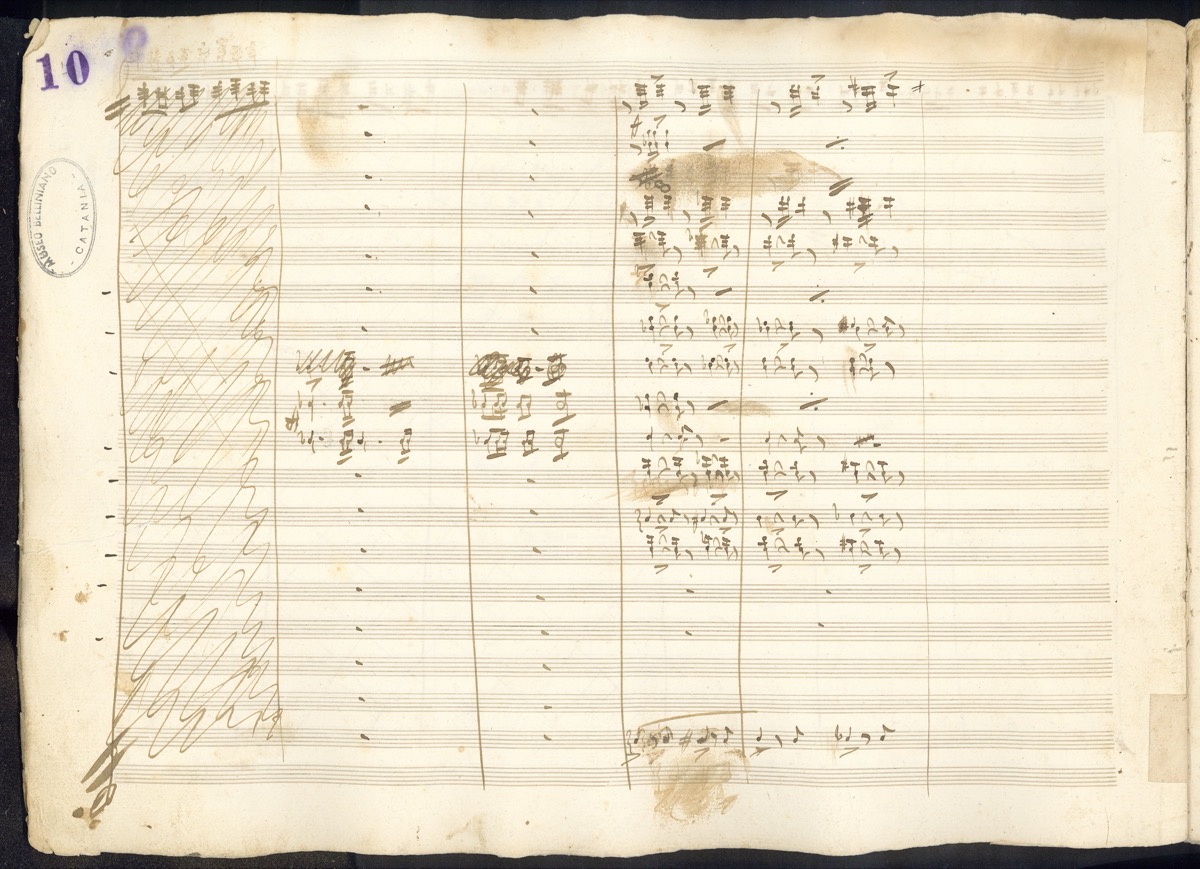 10
MUSEO BELLINIANO
- CATANIA -